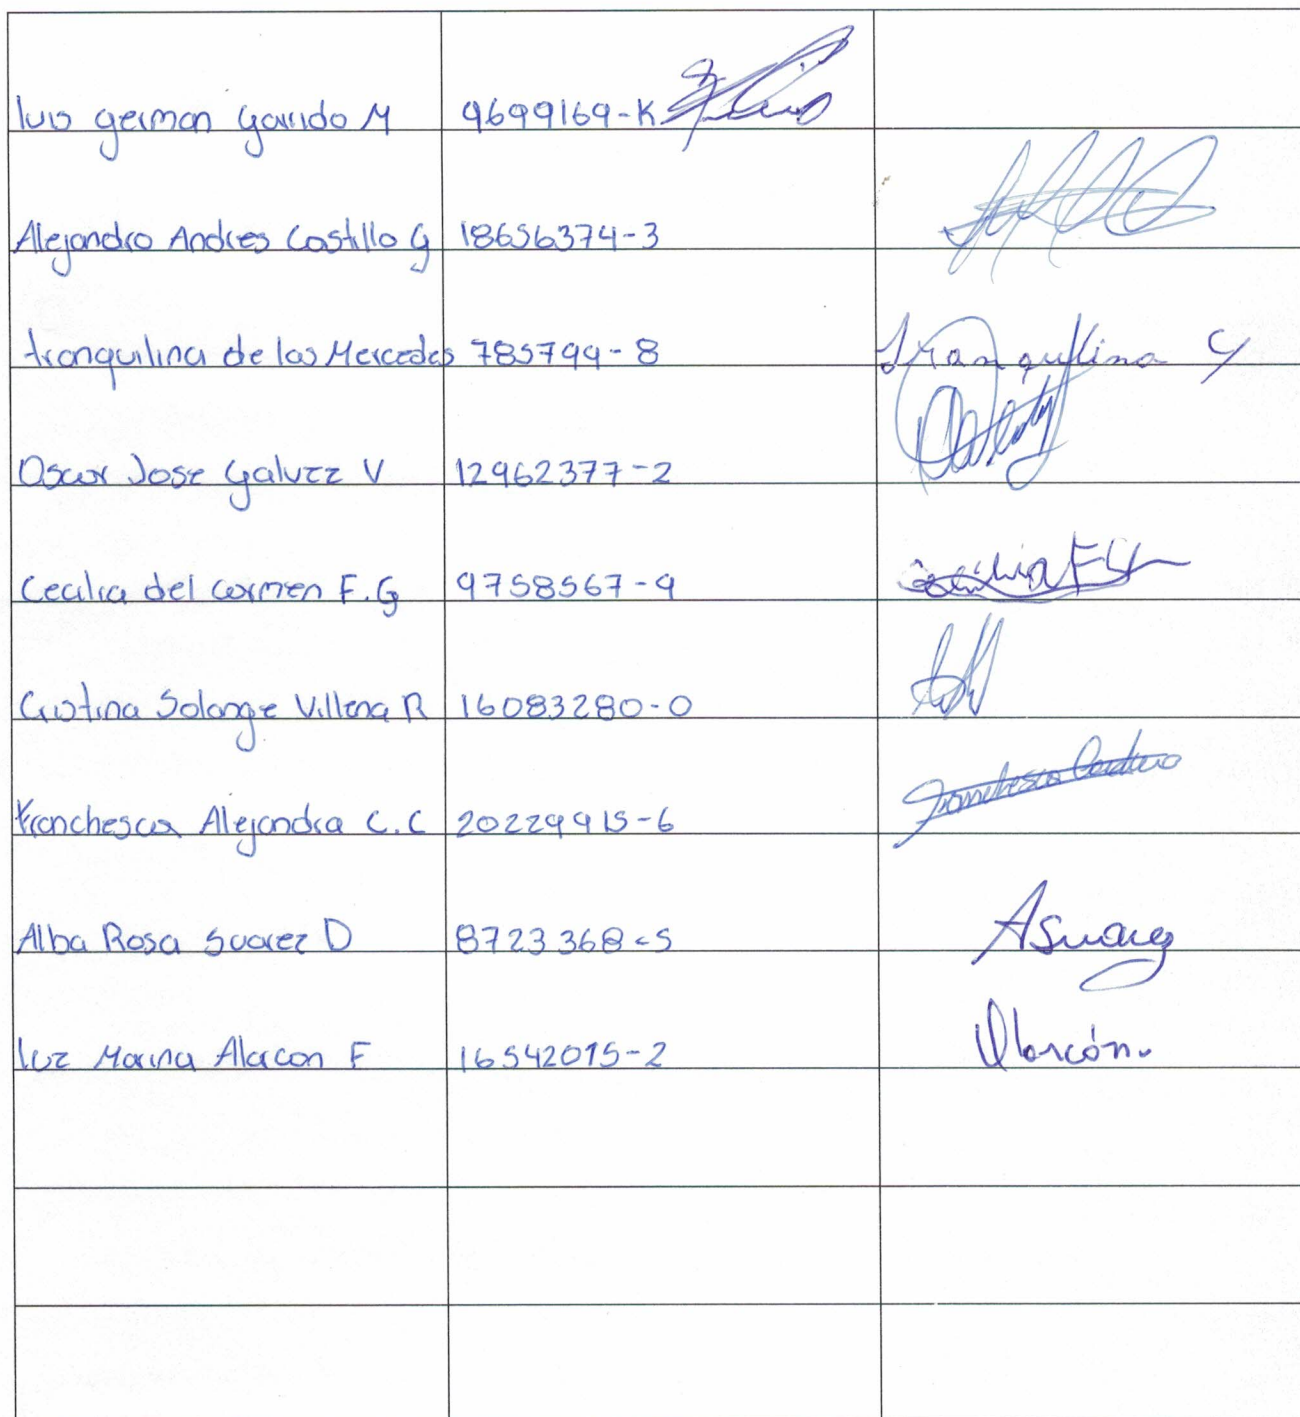 luis german garrido M 9699169-K
Alejandro Andres Castillo G 18656374-3
tranquilina de las Mercedes 785799-8 Tranquilina G
Oscar Jose Galvez V 12962377-2
Cecilia del carmen F.G 9758567-9 Cecilia FG
Cristina Solange Villena R 16083280-0
Franchesca Alejandra C.C 20229915-6 Franchesca Cordero
Alba Rosa Suarez D 8723368-5 ASuarez
luz Marina Alarcon F 16542015-2 Alarcón.